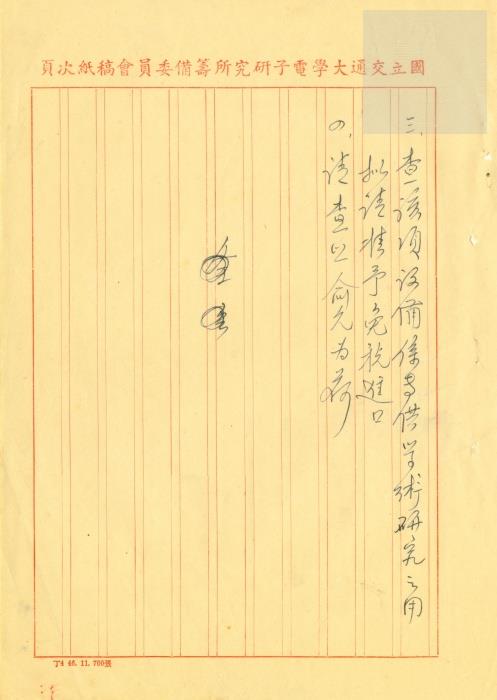 國立交通大學電子研究所籌備委員會稿紙次頁
三、查該項設備係專供学術研究之用
擬請惟予免税進口
四、請查照俞允為荷
丁4 46. 11. 700張